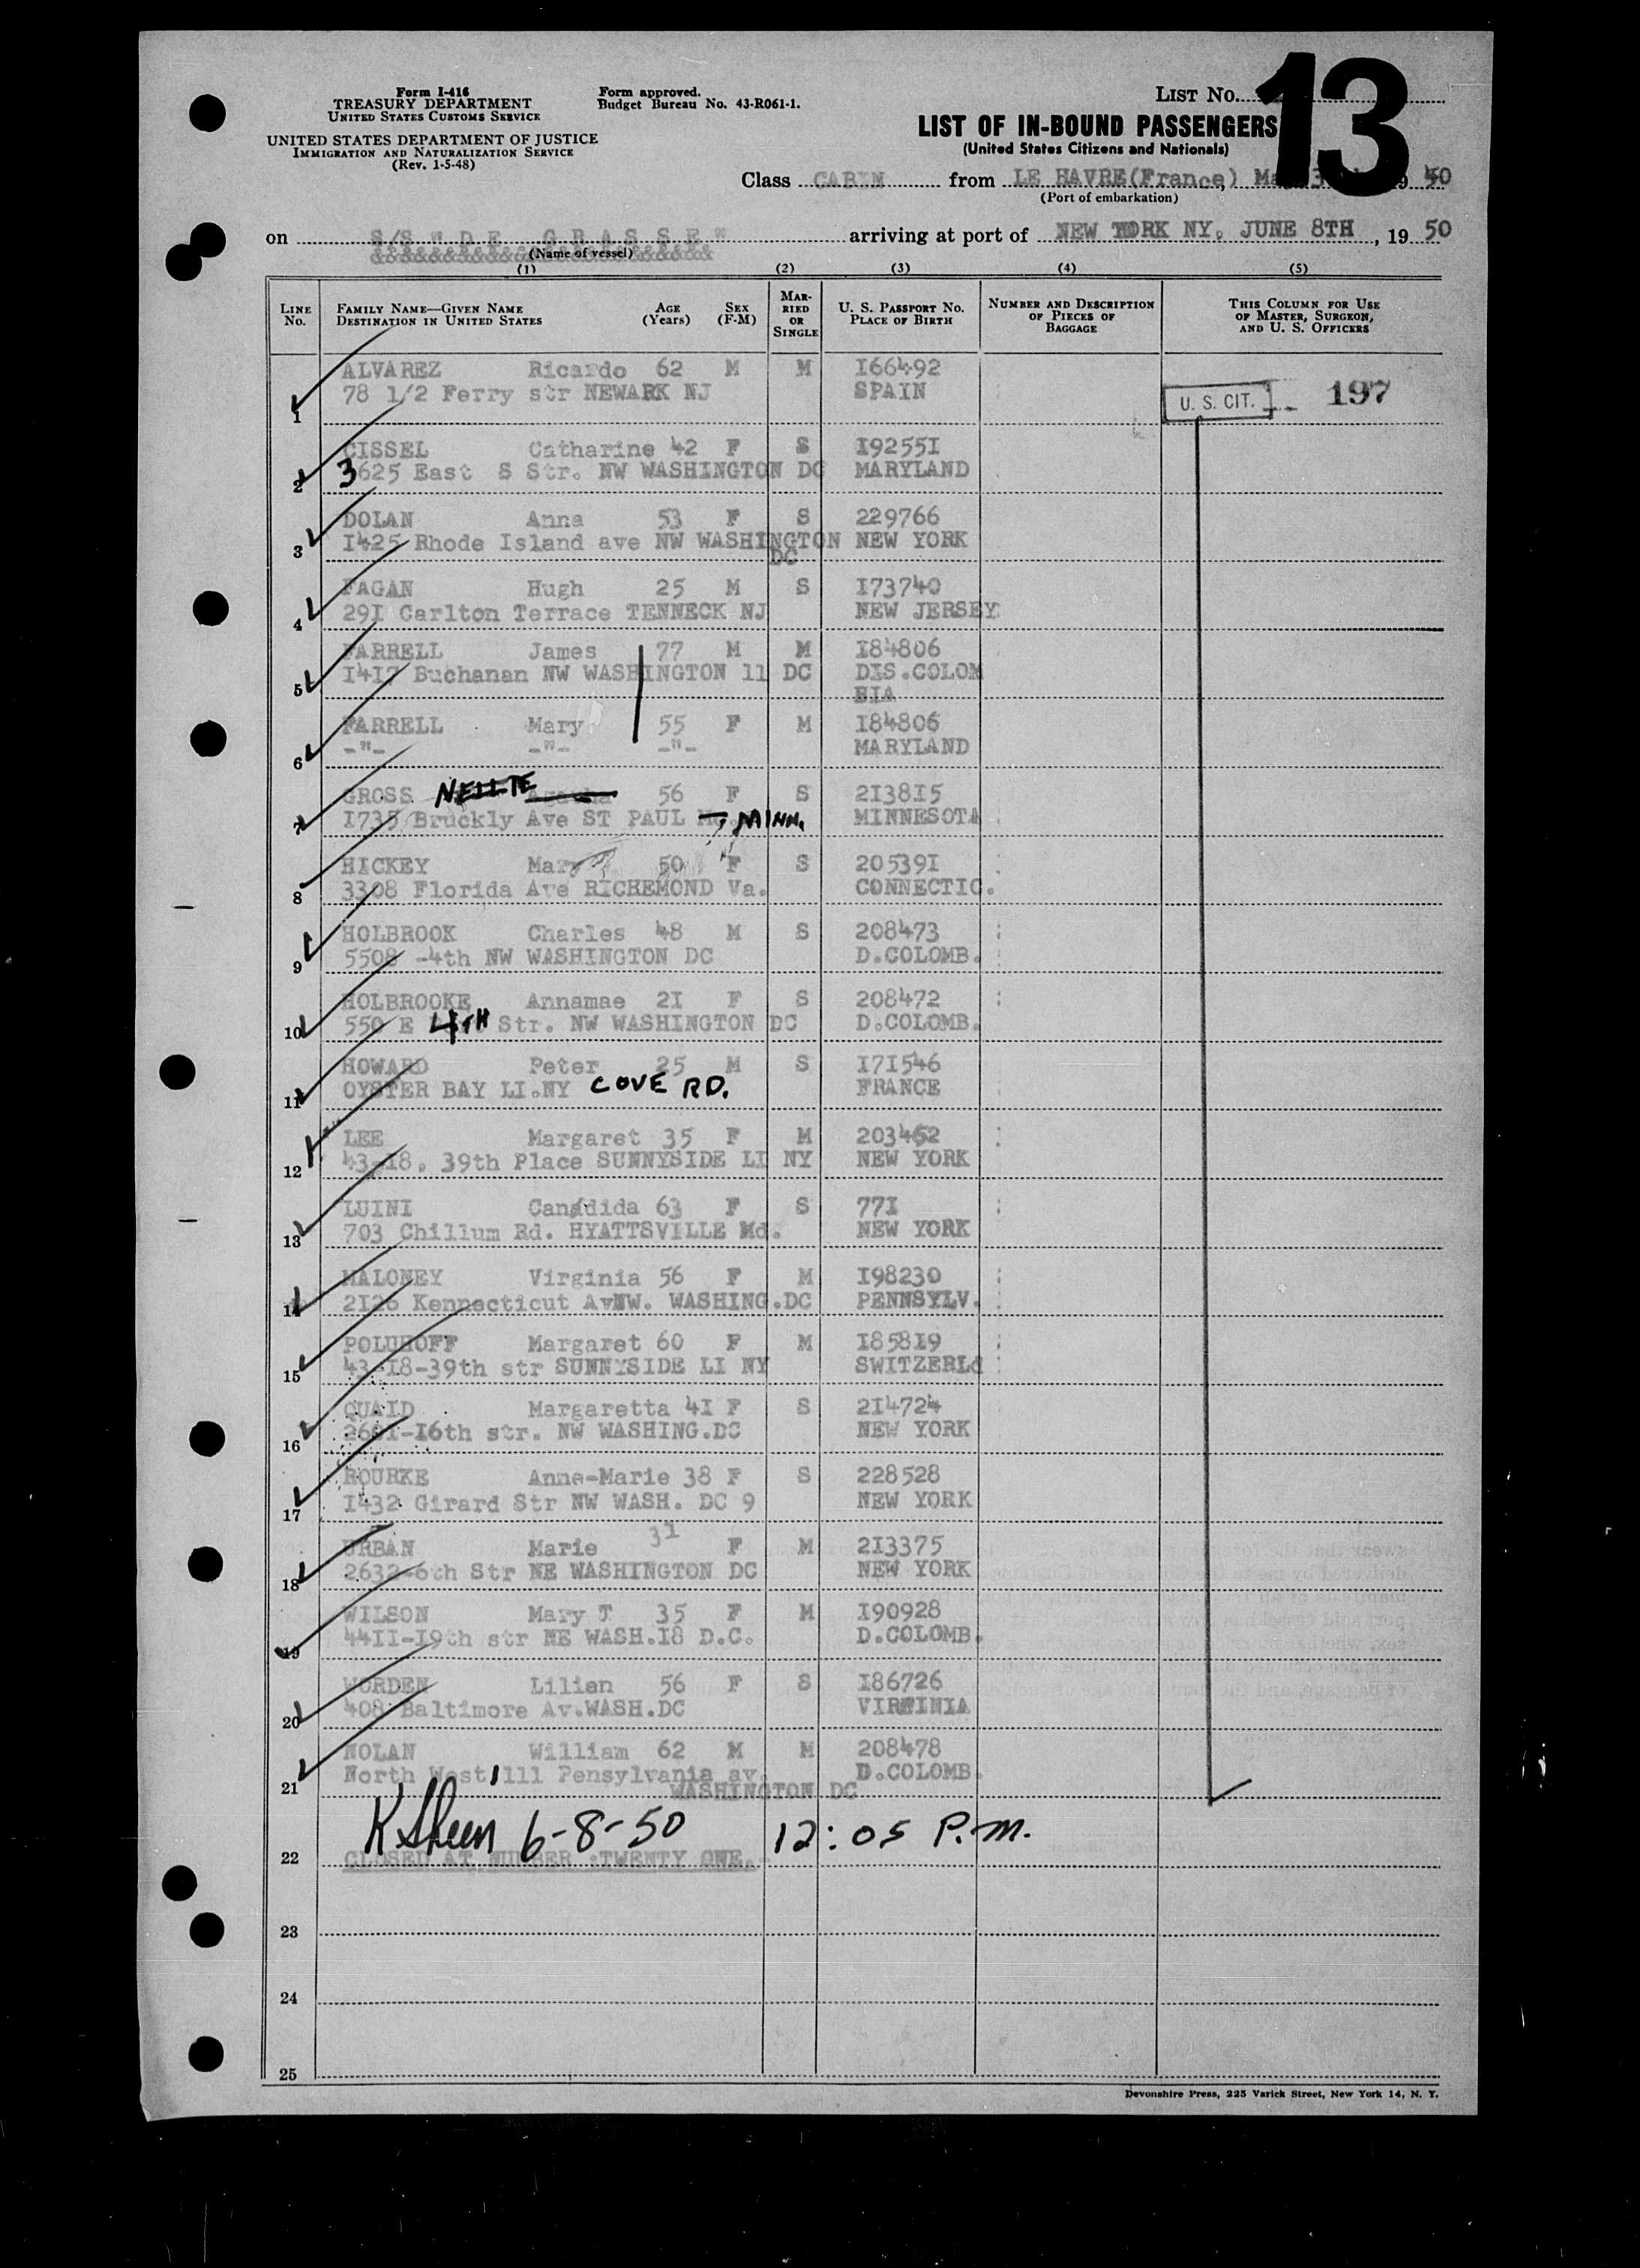 Form I-416
TREASURY DEPARTMENT
UNITED STATES CUSTOMS SERVICE
UNITED STATES DEPARTMENT OF JUSTICE
IMMIGRATION AND NATURALIZATION SERVICE
(Rev. 1-5-48)
Form approved.
Budget Bureau No. 43-R061-1.
LIST No. 13
LIST OF IN-BOUND PASSENGERS
(United States Citizens and Nationals)
Class CABIN from LE HAVRE(France) 50
(Port of embarkation)
on S/S "D E G R A S S E" arriving at port of NEW YORK NY. JUNE 8TH, 19 50
(Name of vessel)
(1) (2) (3) (4) (5)
LINE No. FAMILY NAME—GIVEN NAME DESTINATION IN UNITED STATES AGE (Years) SEX (F-M) MARRIED OR SINGLE U. S. PASSPORT No. PLACE OF BIRTH NUMBER AND DESCRIPTION OF PIECES OF BAGGAGE THIS COLUMN FOR USE OF MASTER, SURGEON, AND U. S. OFFICERS
ALVAREZ Ricardo 62 M M I66492
1 78 1/2 Ferry str NEWARK NJ SPAIN U. S. CIT. 197
CISSEL Catharine 42 F S I9255I
2 3625 East S Str. NW WASHINGTON DC MARYLAND
DOLAN Anna 53 F S 229766
3 I425 Rhode Island ave NW WASHINGTON DC NEW YORK
FAGAN Hugh 25 M S I73740
4 29I Carlton Terrace TENNECK NJ NEW JERSEY
FARRELL James 77 M M I84806
5 I417 Buchanan NW WASHINGTON 11 DC DIS.COLOM
BIA
FARRELL Mary 55 F M I84806
6 -"- -"- -"- MARYLAND
GROSS NELLIE 56 F S 2I38I5
7 I735 Bruckly Ave ST PAUL MINN. MINNESOTA
HICKEY Mary 50 F S 20539I
8 3308 Florida Ave RICHEMOND Va. CONNECTIC.
HOLBROOK Charles 48 M S 208473
9 5508 -4th NW WASHINGTON DC D.COLOMB.
HOLBROOKE Annamae 2I F S 208472
10 550 E 4TH Str. NW WASHINGTON DC D.COLOMB.
HOWARD Peter 25 M S I7I546
11 OYSTER BAY LI.NY COVE RD. FRANCE
LEE Margaret 35 F M 203462
12 43-I8, 39th Place SUNNYSIDE LI NY NEW YORK
LUINI Candida 63 F S 77I
13 703 Chillum Rd. HYATTSVILLE Md. NEW YORK
MALONEY Virginia 56 F M I98230
14 2I26 Kennecticut AvNW. WASHING.DC PENNSYLV.
POLUHOFF Margaret 60 F M I858I9
15 43-I8-39th str SUNNYSIDE LI NY SWITZERLd
QUAID Margaretta 4I F S 2I4724
16 260I-I6th str. NW WASHING.DC NEW YORK
ROURKE Anne-Marie 38 F S 228528
17 I432 Girard Str NW WASH. DC 9 NEW YORK
URBAN Marie 31 F M 2I3375
18 2632-6th Str NE WASHINGTON DC NEW YORK
WILSON Mary T 35 F M I90928
19 44II-I9th str NE WASH.I8 D.C. D.COLOMB.
WORDEN Lilian 56 F S I86726
20 408 Baltimore Av.WASH.DC VIRGINIA
NOLAN William 62 M M 208478
21 North West 111 Pensylvania av. D.COLOMB.
WASHINGTON DC
K Sheen 6-8-50 12:05 P.M.
22 CLOSED AT NUMBER :TWENTY ONE.
23
24
25
Devonshire Press, 225 Varick Street, New York 14, N. Y.